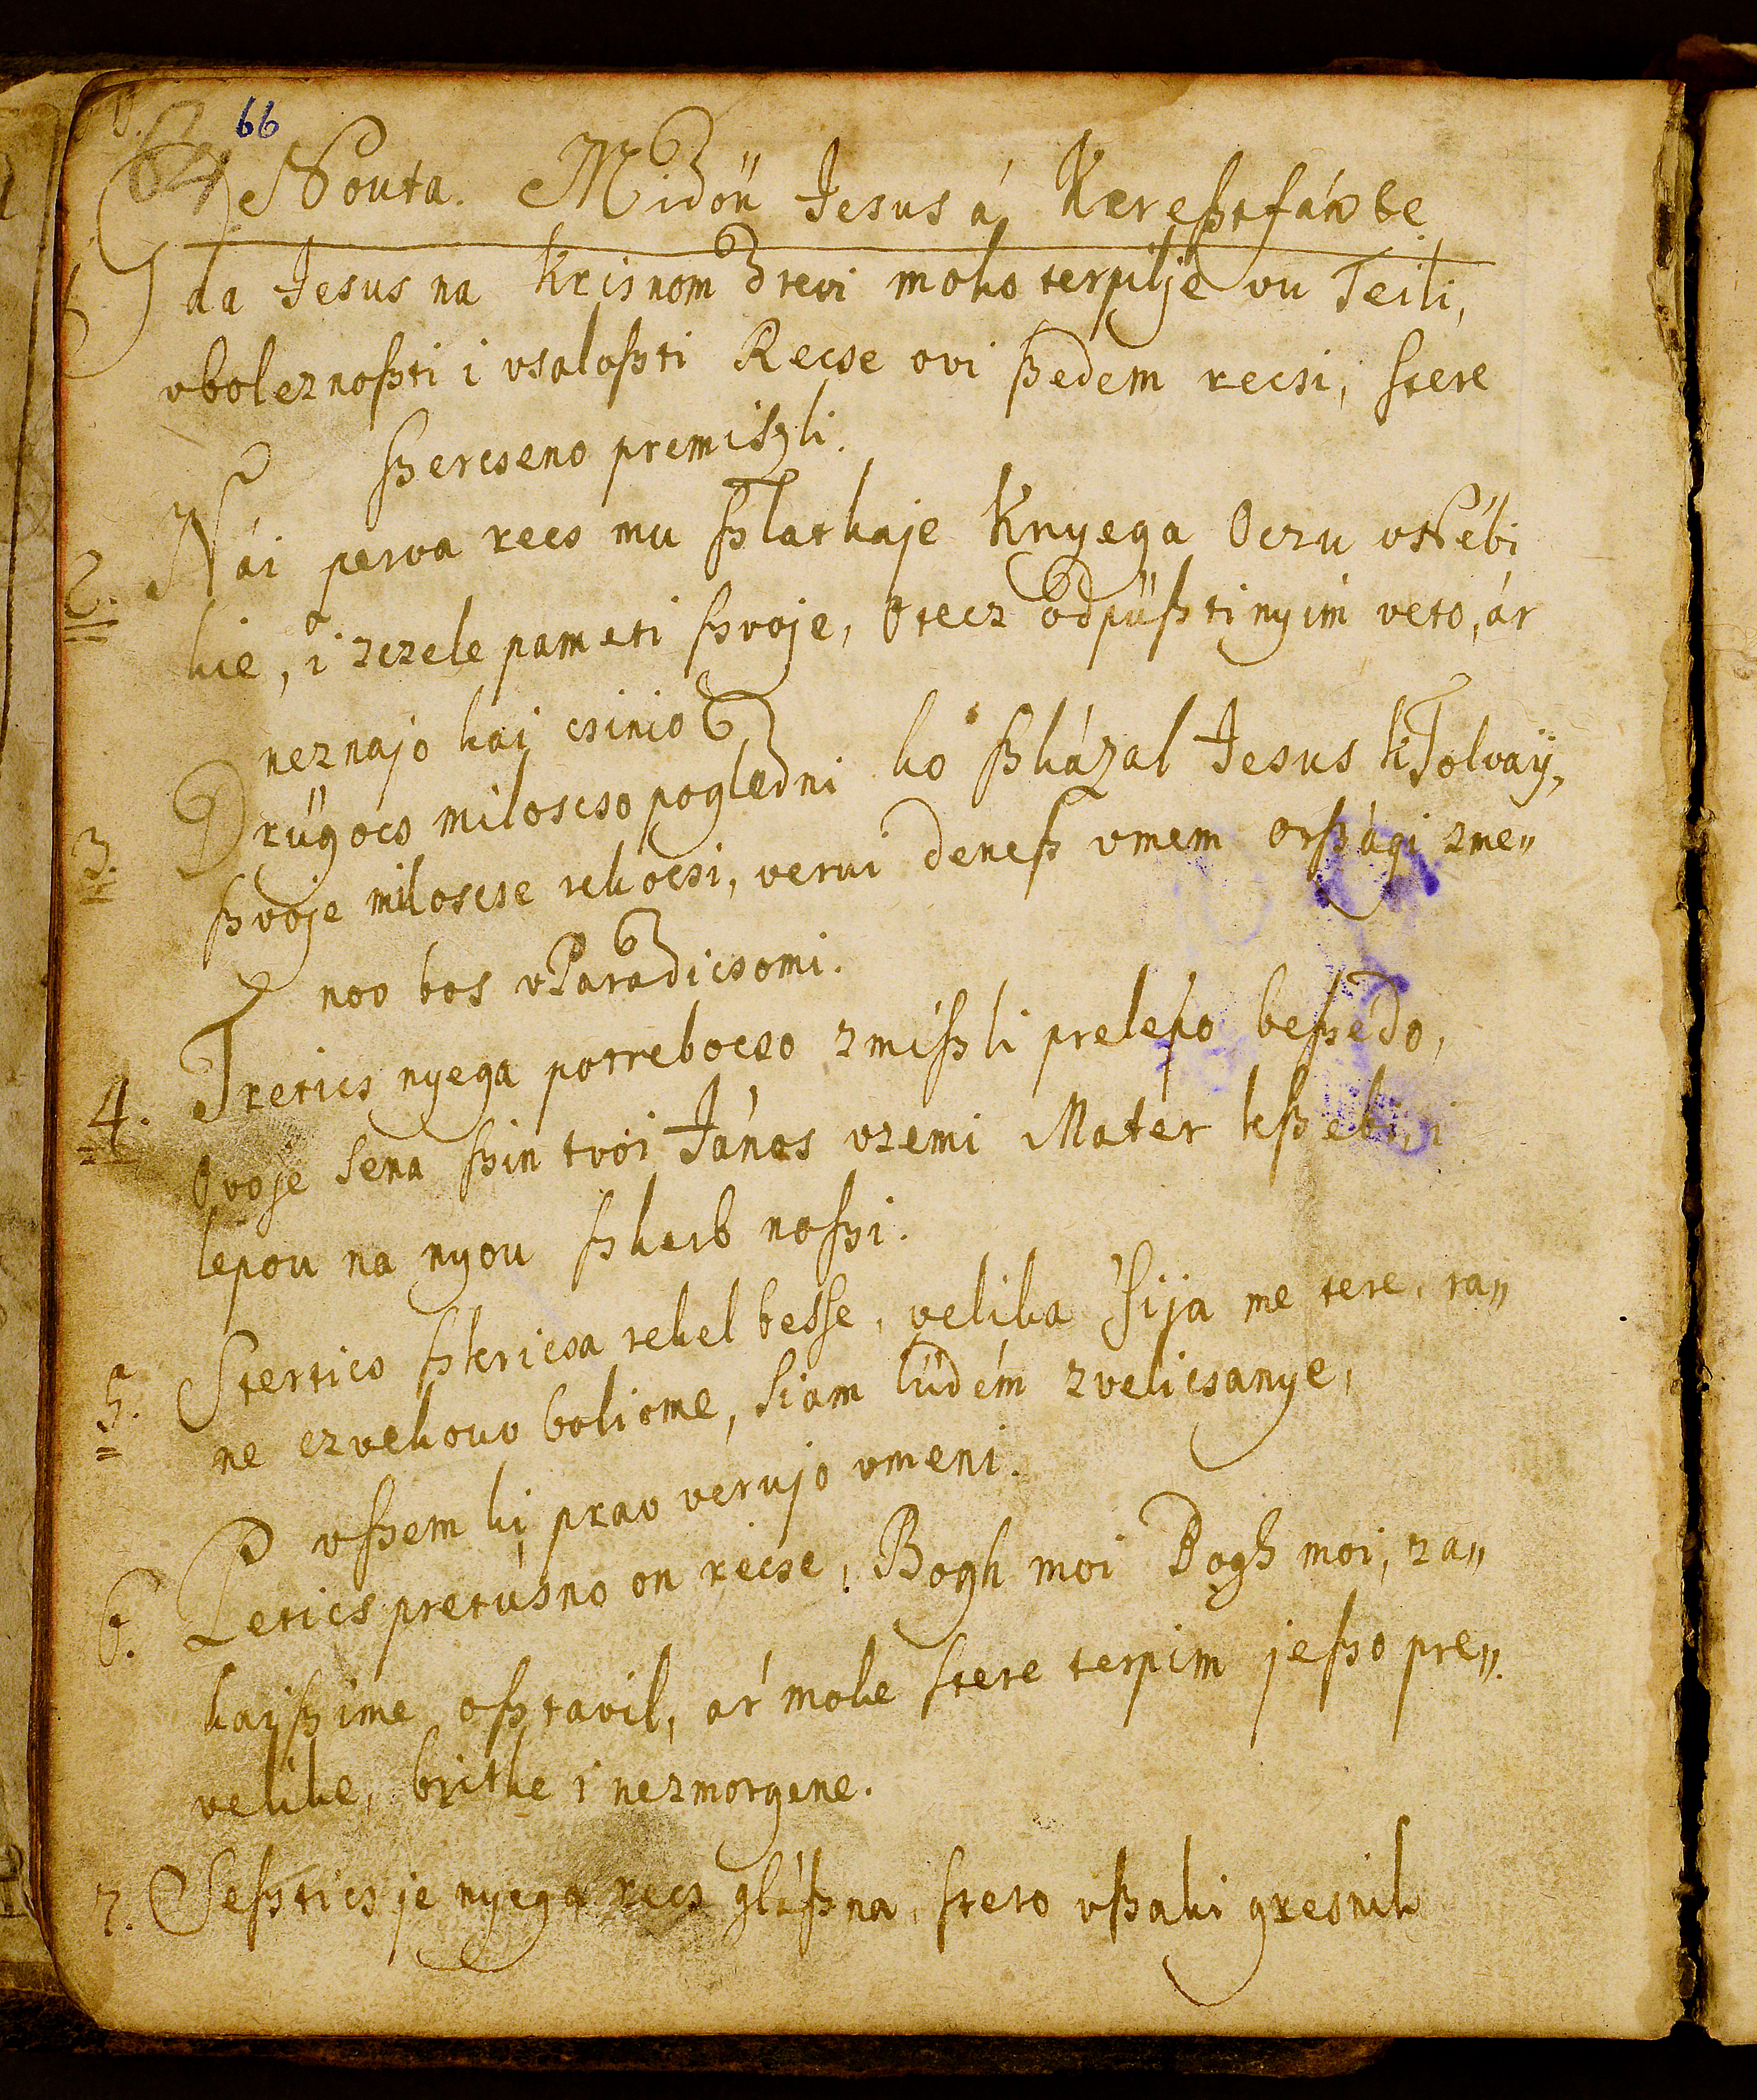 66
64
Nouta. Midőn Jesus á Kereßtfán be
1. Gda Jesus na krisnom drevi moko terpilje vu Teili,
vboleznoßti i vsaloßti Recse ovi ßedem recsi, stere
ßercseno premiszli.
2. Nái perva recs mu ßlatkaje Knyega Oczu vNébi
kie, i zczele pameti ßvoje, Otecz odpüßti nyim veto, ár
neznajo kai csinio
3. Drügocs miloscso pogledni ko ßkázal Jesus kTolvaÿ,
ßvoje miloscse rekocsi, verui deneß vmem orßági zme„
nov bos vParadicsomi.
4. Treties nyega potrebocso zmißli prelepo beßedo,
Ovoje sena ßin tvoi János vzemi Mater kßebi, i
lepou na nyou ßkeib noßi.
5. Stertics ßkricsa rekel besse, velika 'sija me tere, ra„
ne czvekovv bolio me, siam lüdém zvelicsanye,
vßem ki prav verujo vmeni.
6. Petics pretusno on recse, Bogh moi Bogh moi, za„
kajßi me oßtavil, ár moke stere terpim jeßo pre„
velike, britke i nezmorgene.
7. Seßtics je nyega recs gláßna, stero vßaki gresnik